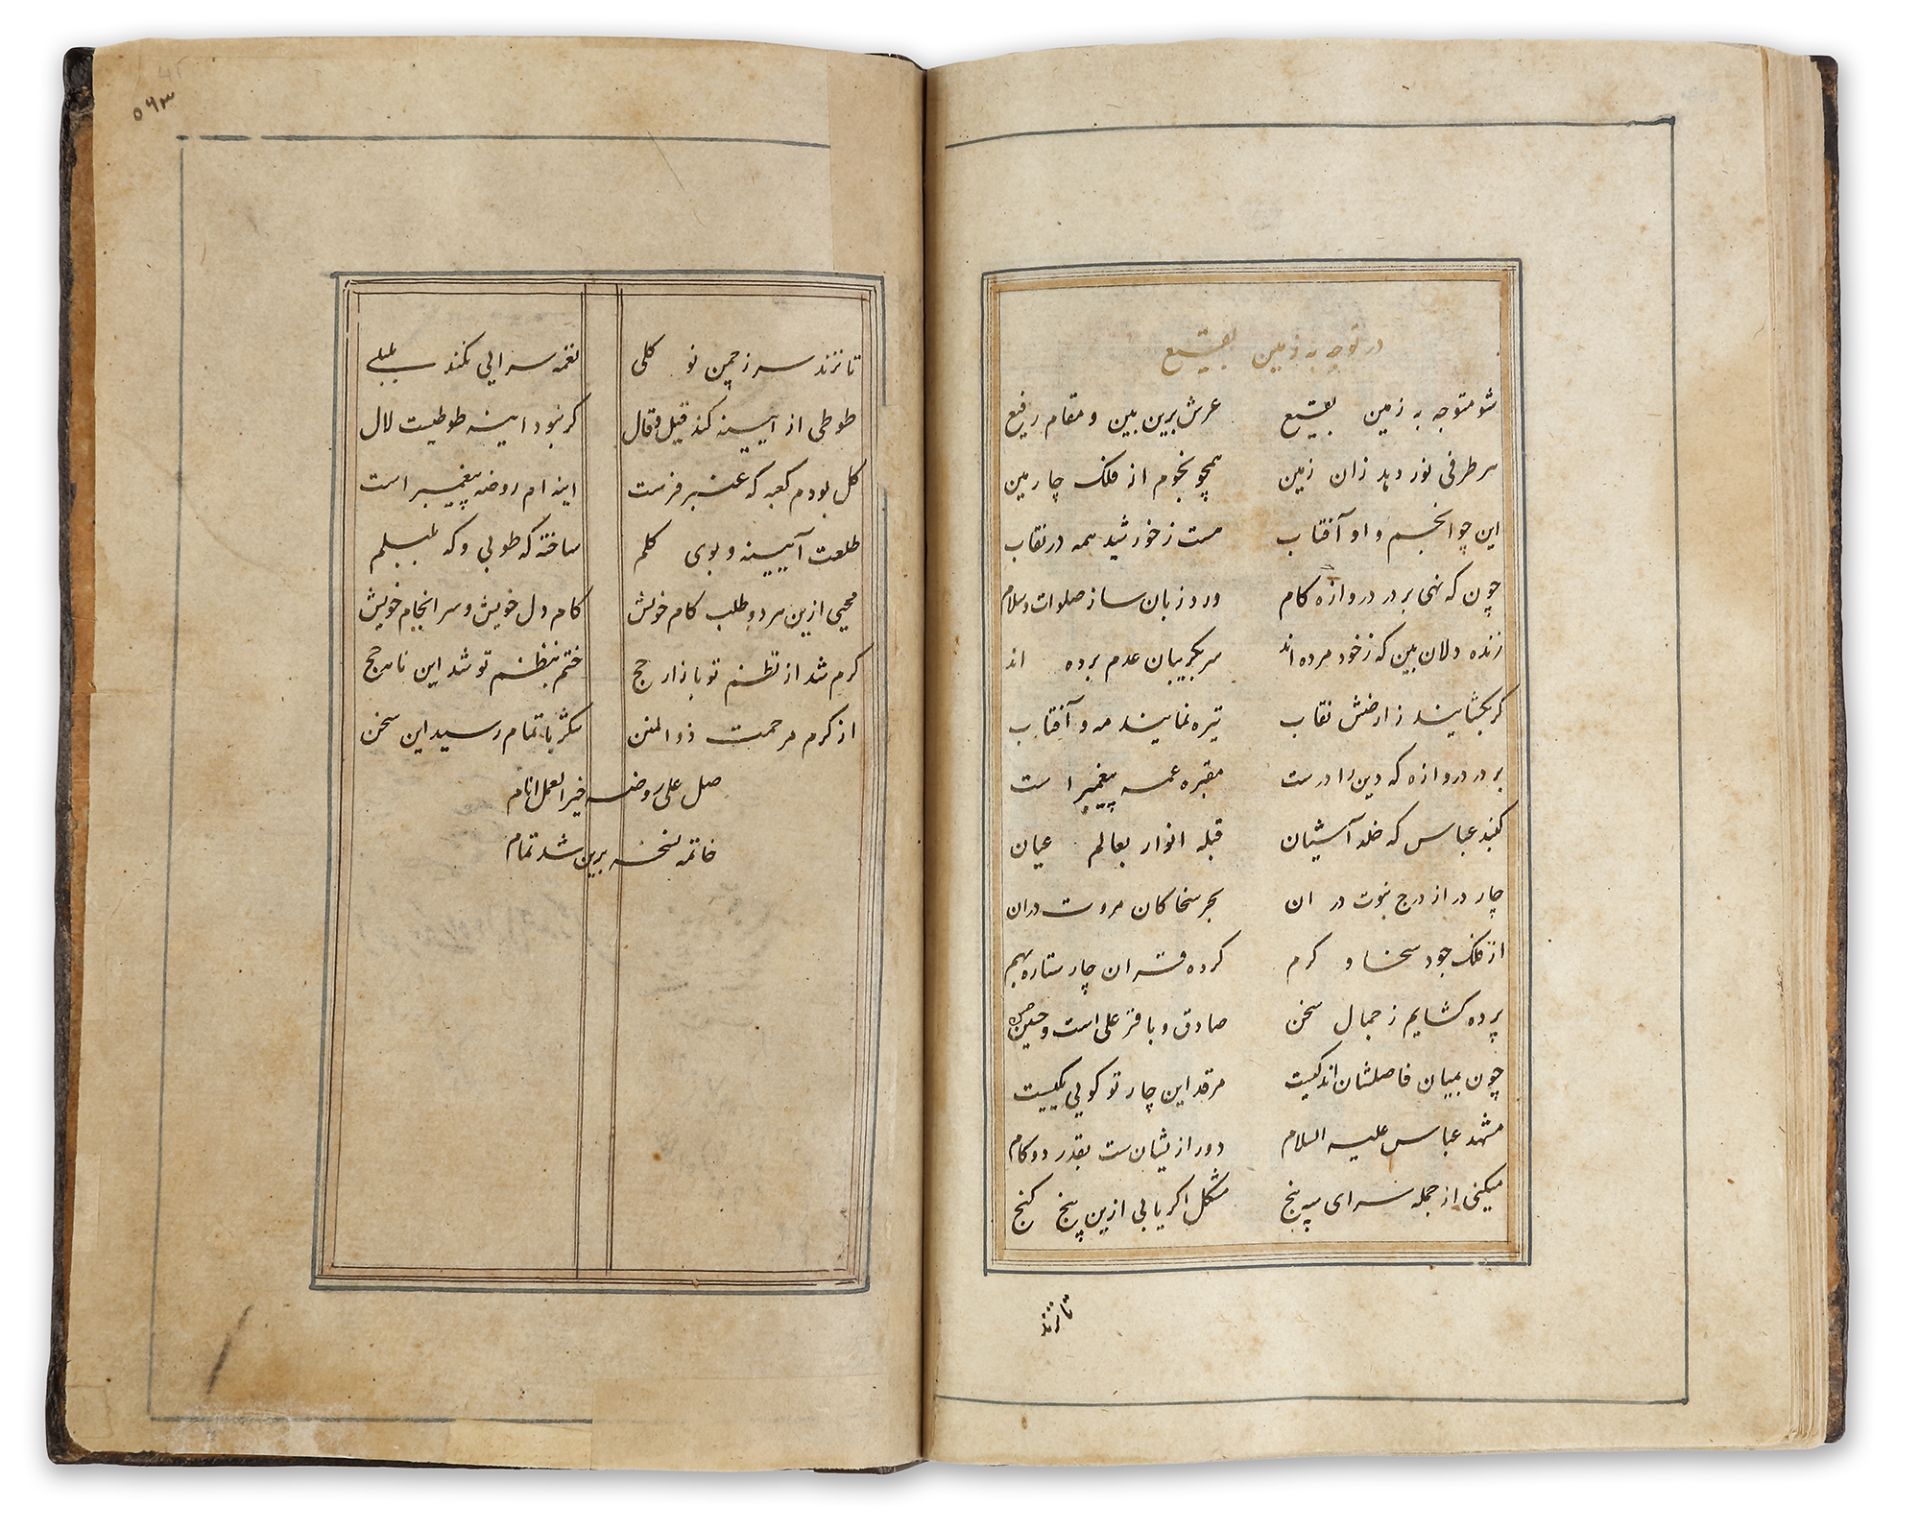 در توجه به زمین بقیع
شو متوجه به زمین بقیع عرش برین بین و مقام رفیع
هر طرفی نور دهد زان زمین همچو نجوم از فلک چارمین
این چو انجم و او آفتاب هست ز خورشید همه در نقاب
چون که نهی بر در دروازه کام ورد زبان ساز صلوات و سلام
زنده دلان بین که ز خود مرده اند سر بگریبان عدم برده اند
کر بکشایند ز ارضش نقاب تیره نمایند مه و آفتاب
بر در دروازه که دین را درست مقبره عمه پیغمبر است
کنبد عباس که خلد آشیان قبله انوار بعالم عیان
چار در از درج نبوت در ان بحر سخا کان مروت دران
از فلک جود سخا و کرم کرده قران چار ستاره بهم
پرده کشایم ز جمال سخن صادق و باقر علی است و حسن
چون بمیان فاصلشان اندکیست مرقد این چار تو کویی یکیست
مشهد عباس علیه السلام دور ازیشان ست بقدر دو کام
میکنی از جمله سرای سپنج مشکل اکر یابی ازین پنج کنج
تا نزند
تا نزند سر ز چمن نو کلی نغمه سرایی نکند بلبلی
طوطی از آیینه کند قیل و قال کر نبود اینه طوطیت لال
کل بودم کعبه که عنبر فرست اینه ام روضه پیغمبر است
طلعت آیینه و بوی کلم ساخته که طوبی و که بلبلم
محیی ازین هر دو طلب کام خویش کام دل خویش و سرانجام خویش
کرم شد از نظم تو بازار حج ختم بنظم تو شد این ناهج حج
از کرم مرحمت ذوالمنن شکر باتمام رسید این سخن
صل علی روضه خیر العمل انام
خاتمه نسخه برین شد تمام
۵۶۳